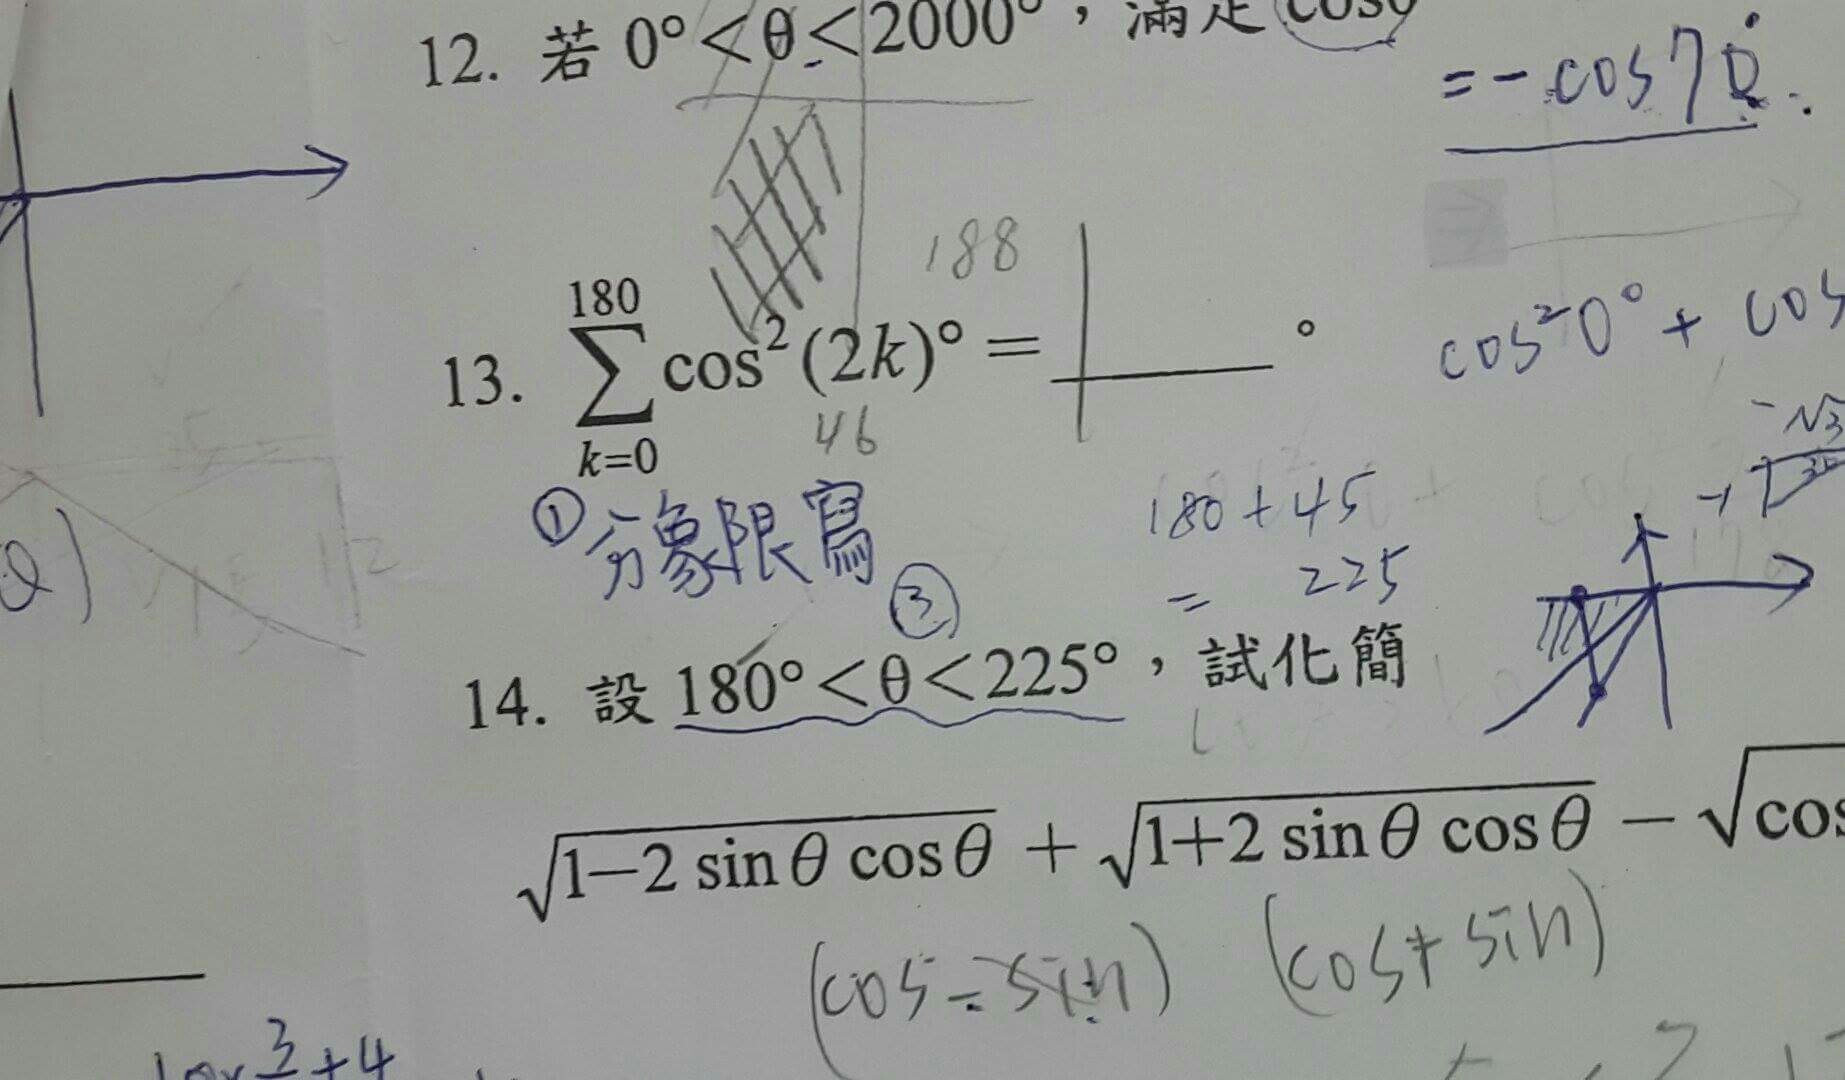 12. 若 0°<θ<2000°，滿足 cosθ
=-cos70°.
188
13. \sum_{k=0}^{180} cos²(2k)° = ____。
cos²0°+ cos
46
-√3
①分象限寫
180+45
= 225
-1
③
14. 設 180°<θ<225°，試化簡
√(1-2 sinθ cosθ) + √(1+2 sinθ cosθ) - √cos
(cos-sin) (cos+sin)
3+4